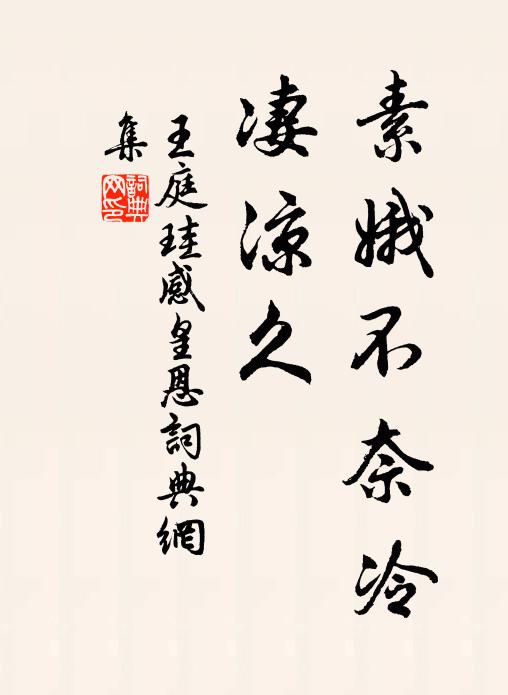 素娥不奈冷
凄涼久
王庭珪感皇恩詞典網
集
詞典
网印